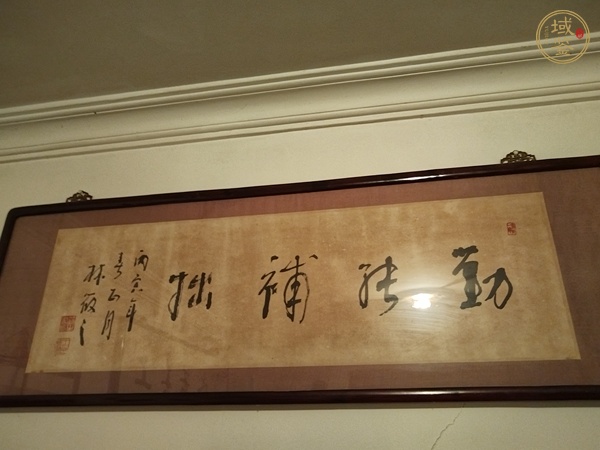 勤能補拙
丙寅年
春正月
林散之
域鉴